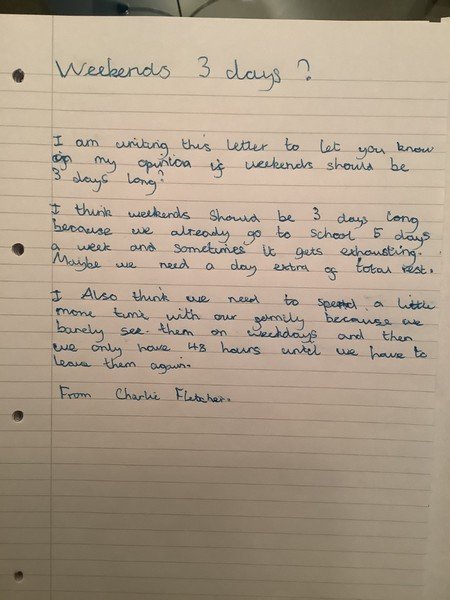 Weekends 3 days?
I am writing this letter to let you know
on my opinion if weekends should be
3 days long?
I think weekends should be 3 days long
because we already go to school 5 days
a week and sometimes it gets exhausting.
Maybe we need a day extra of total rest.
I Also think we need to spend a little
more time with our family because we
barely see them on weekdays and then
we only have 48 hours until we have to
leave them again.
From Charlie Fletcher.